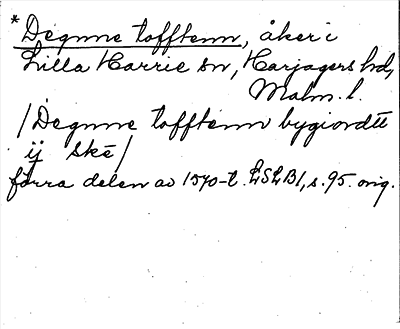 *Degnne tofftenn, åker i
Lilla Harrie sn, Harjagers hd,
Malm. l.
/Degnne tofftenn bygiordtt
ij Skē/
förra delen av 1570-t. LSLB1, s. 95. orig.